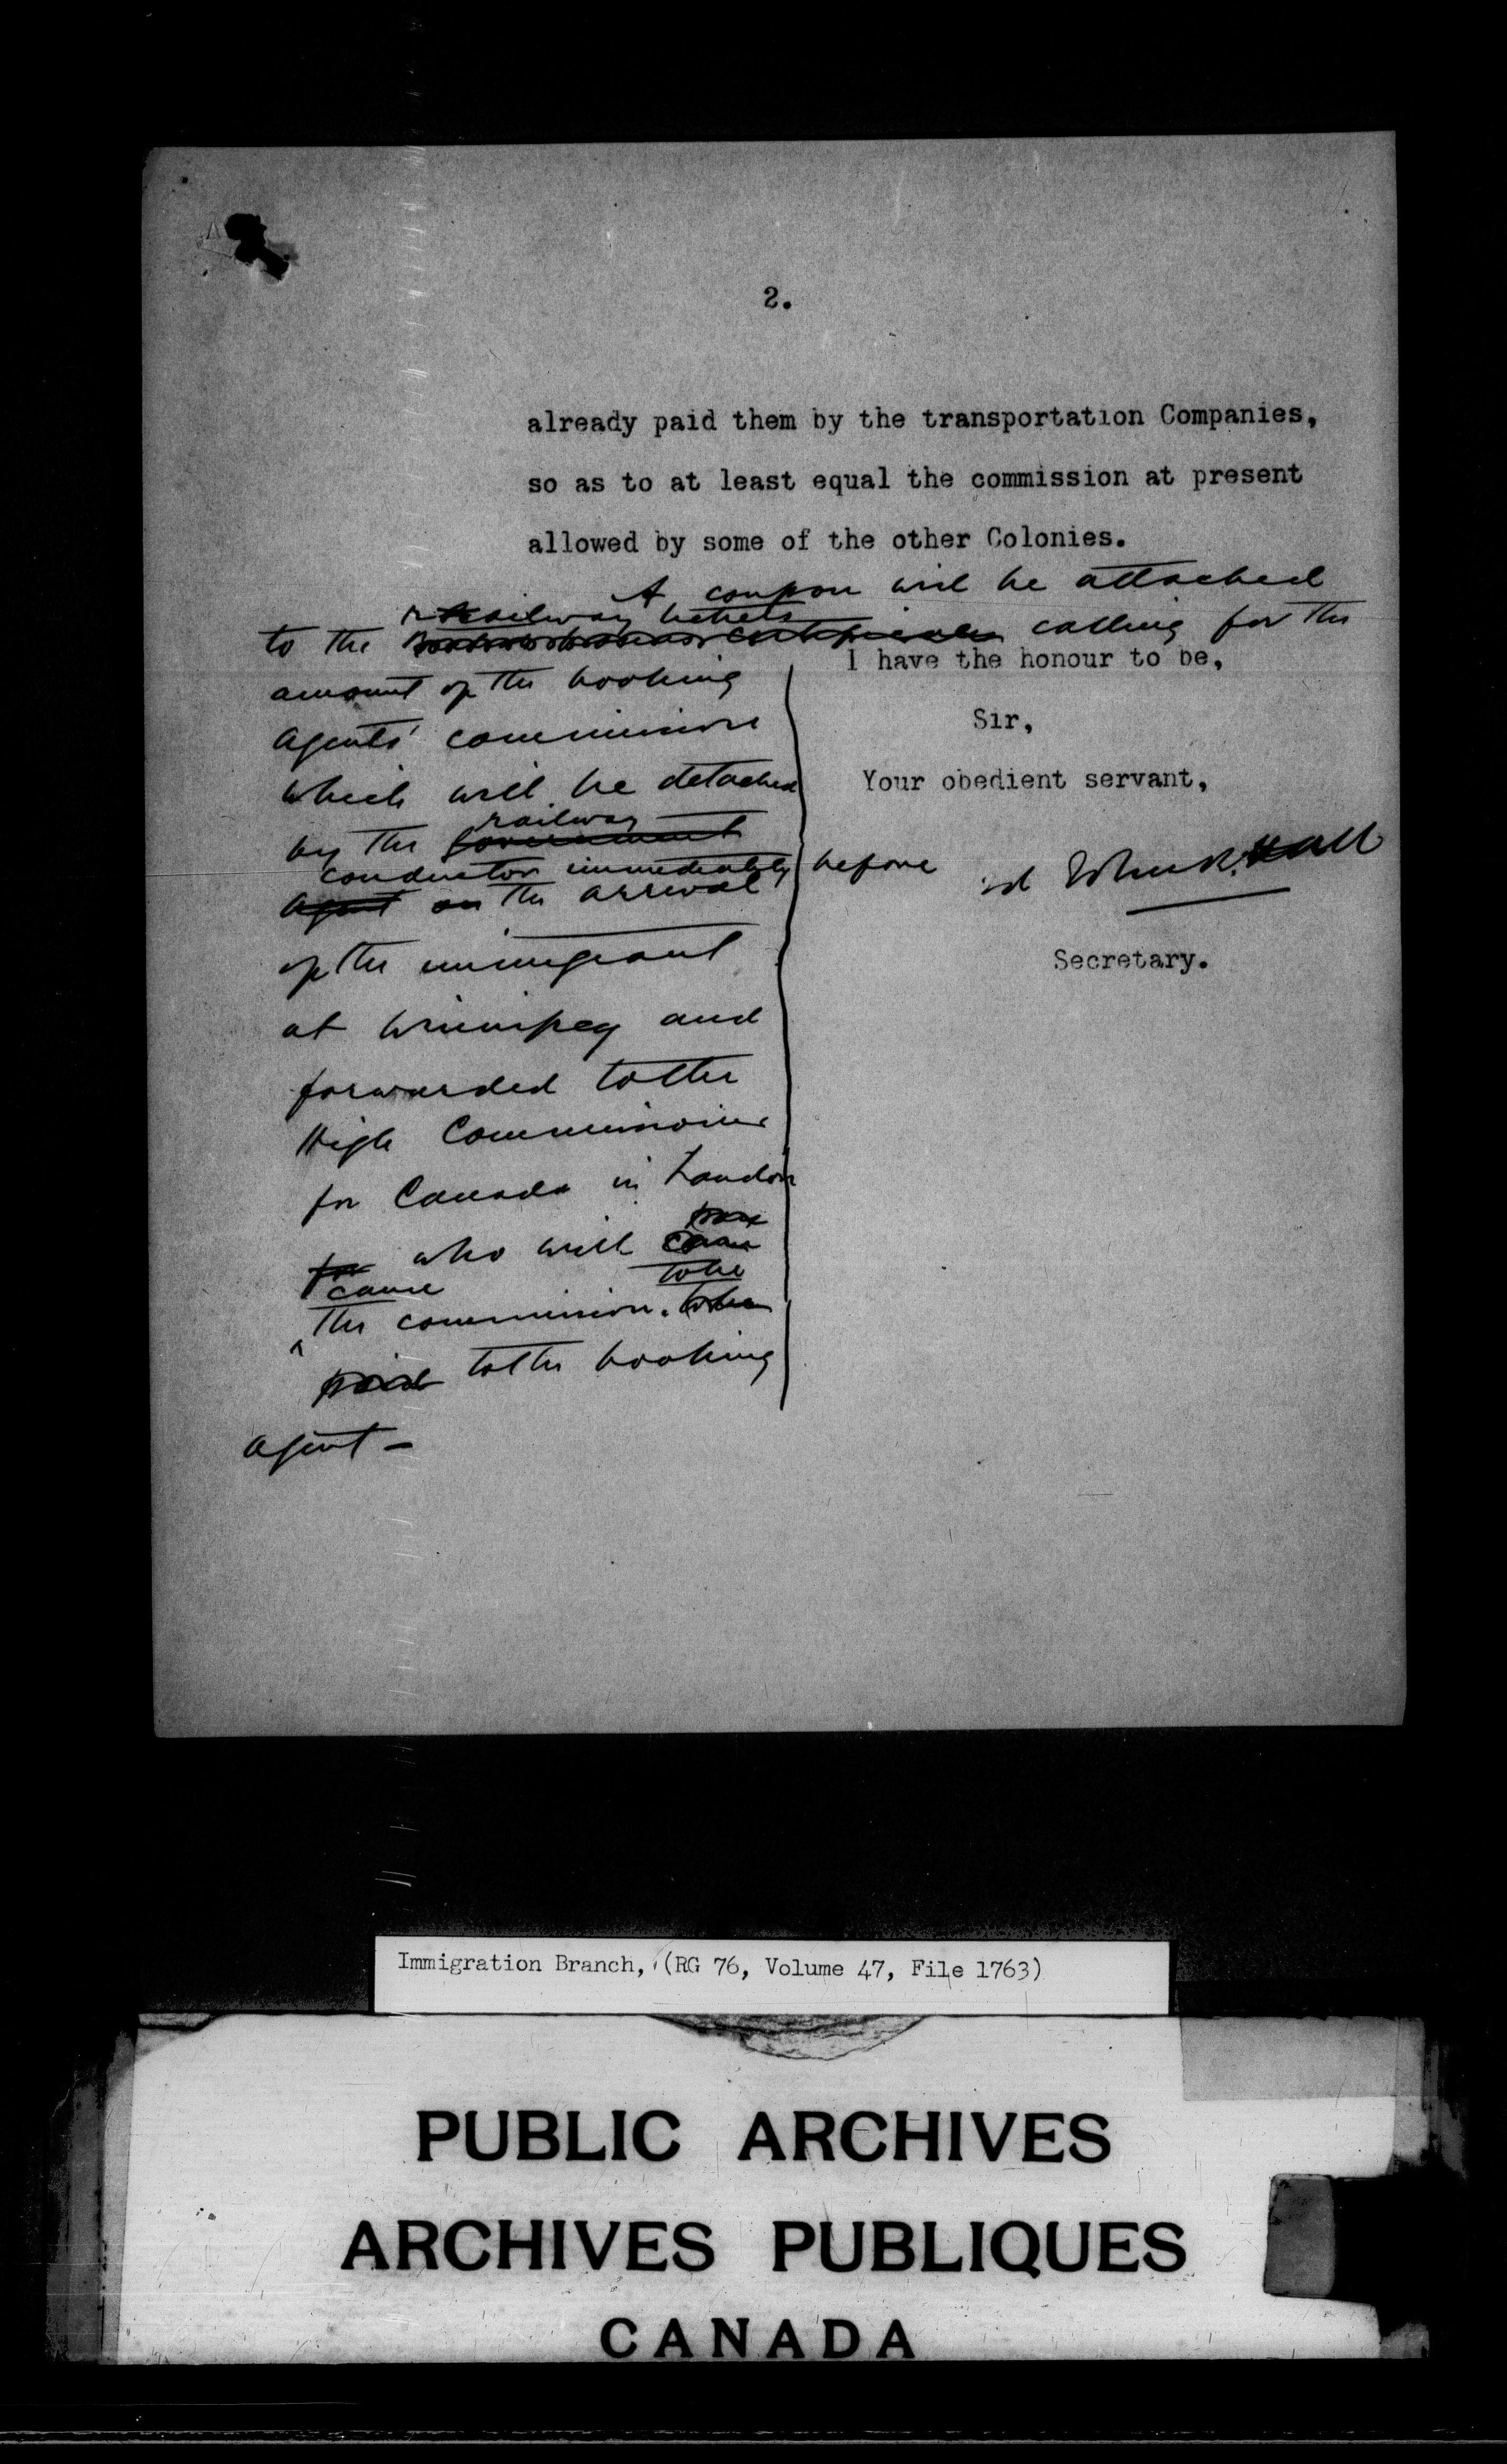 2.
already paid them by the transportation Companies,
so as to at least equal the commission at present
allowed by some of the other Colonies.
A coupon will be attached
railway tickets
to the calling for the
amount of the booking
agents' commission
which will be detached
railway
by the government
conductor immediately before
agent on the arrival
of the immigrant
at Winnipeg and
forwarded to the
High Commissioner
for Canada in London
who will cause
cause to be
the commission
paid to the booking
agent —
I have the honour to be,
Sir,
Your obedient servant,
Hall
Secretary.
Immigration Branch, (RG 76, Volume 47, File 1763)
PUBLIC ARCHIVES
ARCHIVES PUBLIQUES
CANADA